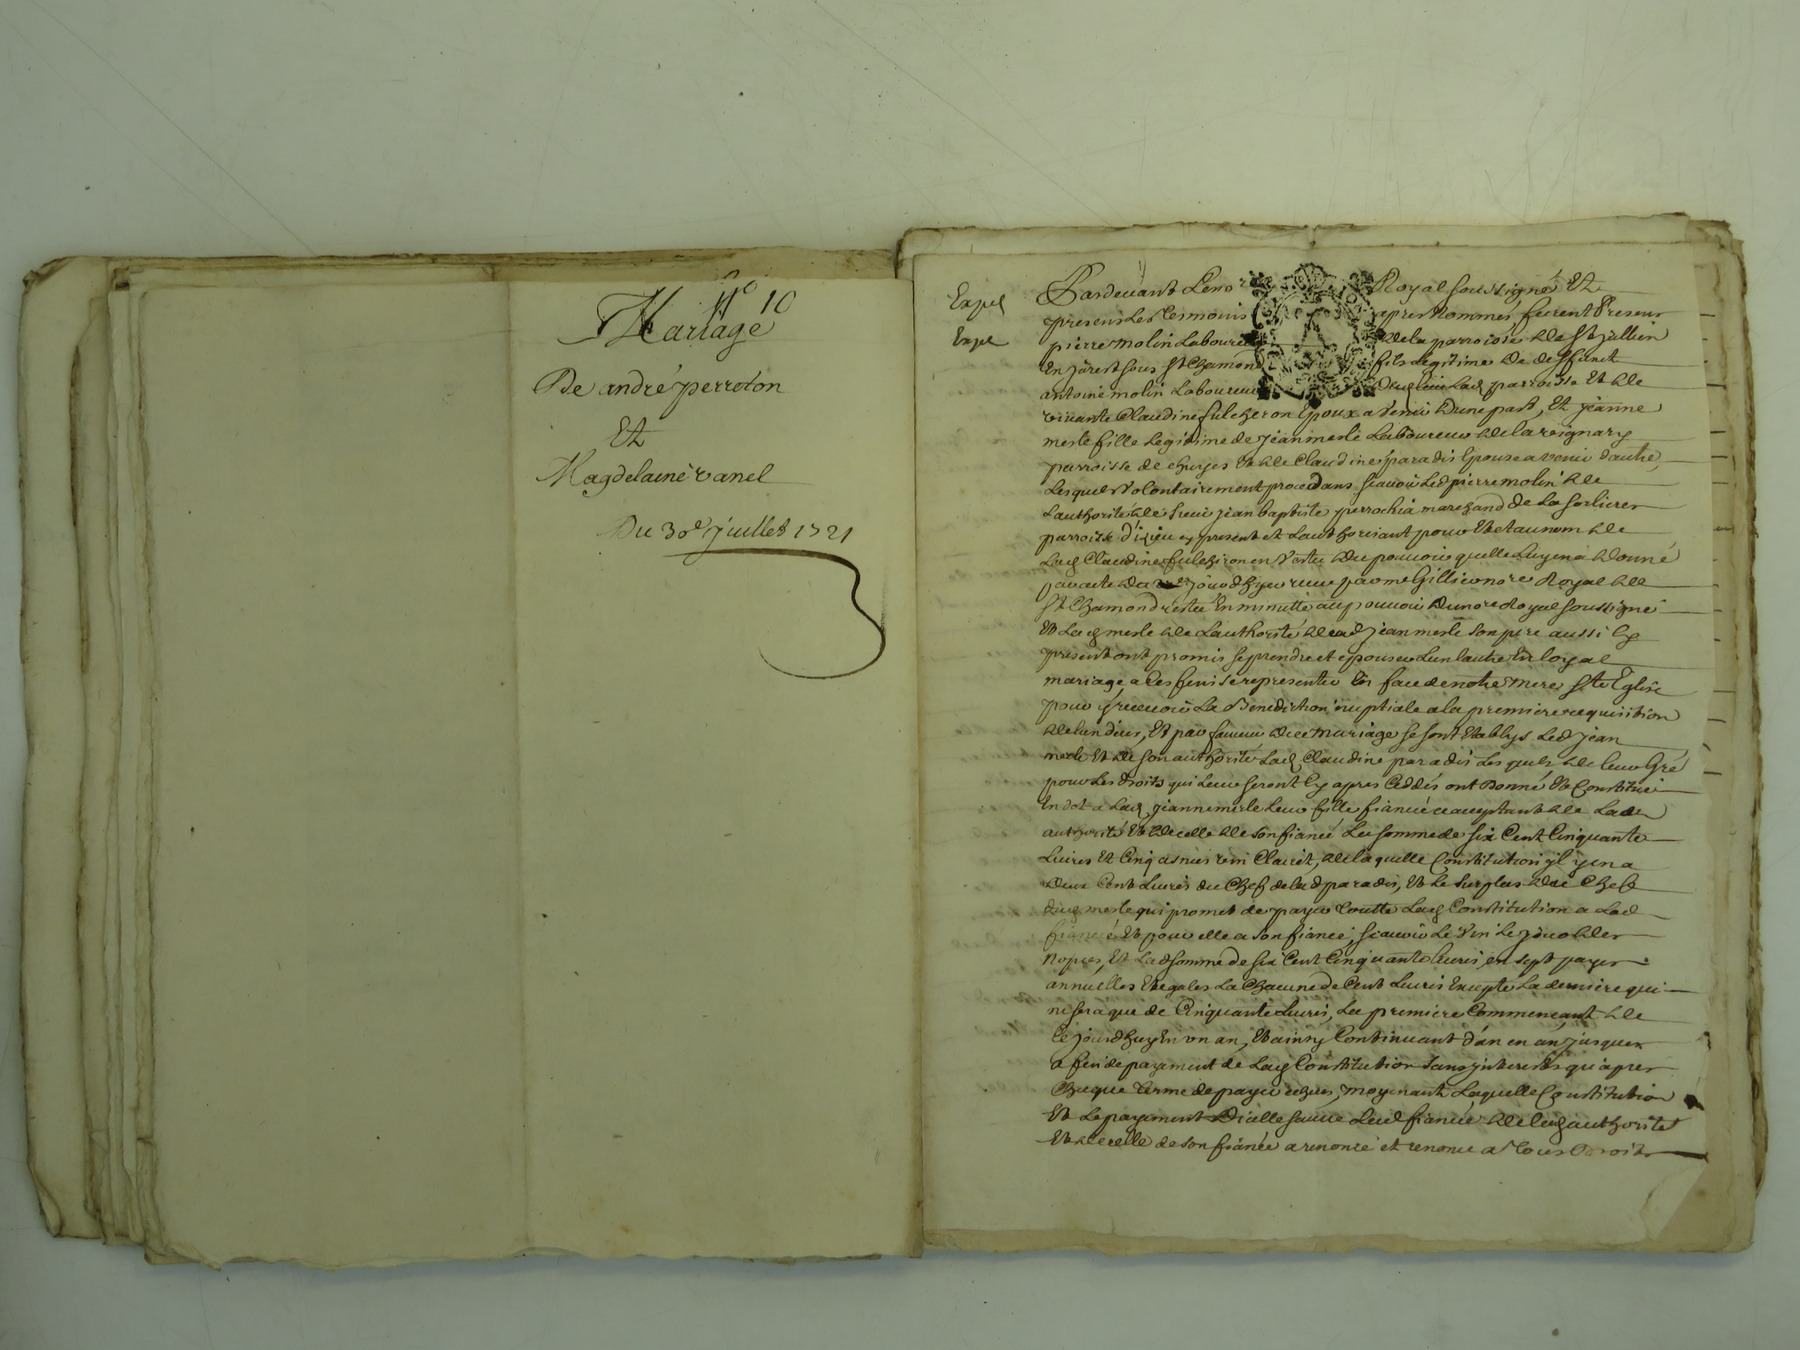 N° 10
Mariage
De andré perroton
Et
Magdelaine vanel
Du 30e Juillet 1721
Expé
Expé
Pardevant Le nore Royal soussigné Et
presens Les tesmoins apres Nommés furent Presens
pierre molin Laboureur de la parroisse de St Jullien
En Jarest sous St Chamond fils Legitime de deffunct
antoine molin Laboureur dud lieu Lad parroisse Et de
vivante Claudine fulcheron Epoux a venir d'une part, Et jeanne
merle fille Legitime de jean merle Laboureur de la
parroisse de chuyes Et de Claudine paradis Epouse a venir d'autre,
Lesquels volontairement procedans sçavoir Led pierre molin de
L'authorité de sieur jean baptiste perrochia marchand de La
parroisse d'izieu cy present et L'authorisant pour Et et au nom de
Lad Claudine fulchiron en vertu du pouvoir quelle Luy en a donné
par acte de jourdhuy receu par me Gillier nore Royal de
St Chamond restée En minutte au pouvoir du nore Royal soussigné
Et Lad merle de L'authorité dud jean merle son pere aussi Cy
present ont promis se prendre et epouser L'un L'autre En loyal
mariage a Ces fins se representer En face de notre mere Ste Eglise
pour y recevoir La Benediction nuptiale a la premiere requisition
de l'un d'eux, Et par faveur de ce mariage se sont Etablys Led Jean
merle Et de son authorité Lad Claudine paradis Lesquels de leur Gré
pour Les droits qui Leur seront Cy apres Ceddés ont Donné Et Constitué
En dot a Lad jeanne merle Leur fille fiancée acceptant de Lade
authorité Et de celle de son fiancé La somme de six Cent Cinquante
Livres Et Cinq asnées vin Clairet, de laquelle Constitution il y en a
deux Cent Livres du Chef de lad paradis, Et Le surplus du Chef
dud merle qui promet de payer toutte Lad Constitution a Lad
fiancée Et pour elle a son fiancé, sçavoir Le vin Le jour des
Nopces, Et Lad somme de six Cent Cinquante livres en sept payes
annuelles Et egales La Chacune de Cent Livres Excepté La derniere qui
ne sera que de Cinquante Livres, La premiere Commenceant de
Ce jourdhuy En un an, Et ainsy Continuant d'an en an jusques
a fin de payement de Lad Constitution sans interests qu'apres
Chaque terme de paye echeu, moyenant Laquelle Constitution
Et Le payement D'icelle Lad fiancée de lad authorité
Et de celle de son fiancé a renoncé et renonce a tous Droits